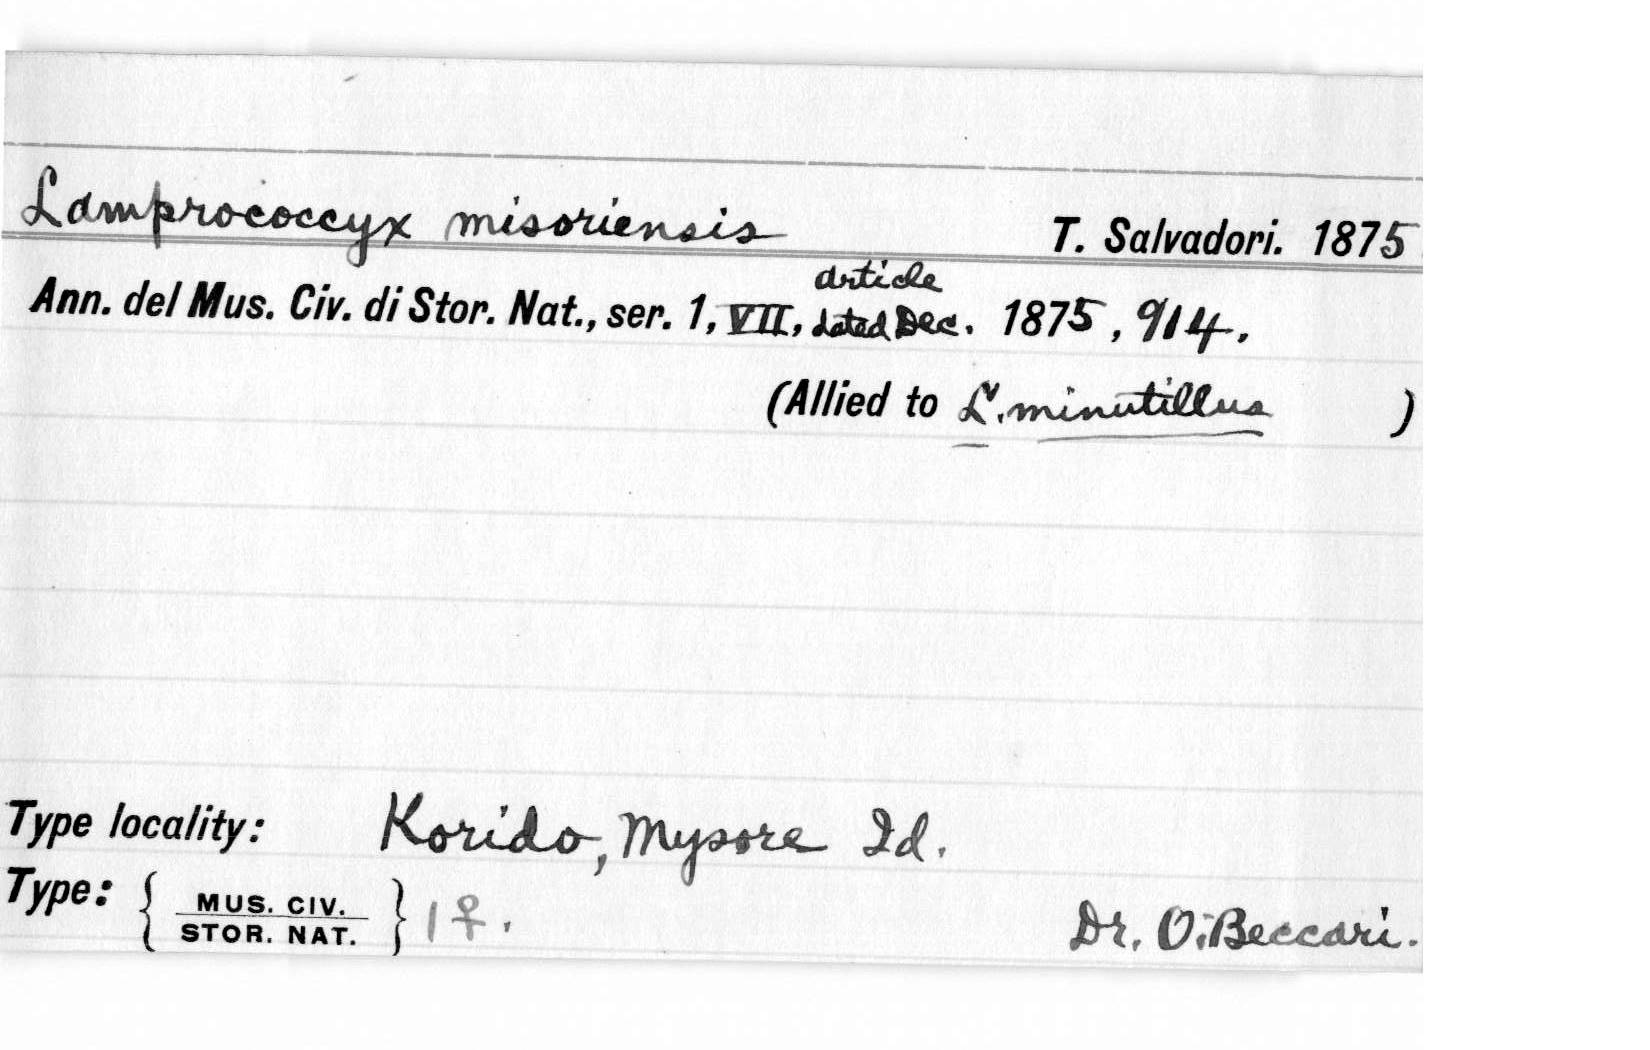 Lamprococcyx misoriensis T. Salvadori. 1875
article
Ann. del Mus. Civ. di Stor. Nat., ser. 1, VII, dated Dec. 1875, 914.
(Allied to L. minutillus )
Type locality: Korido, Mysore Id.
Type: { MUS. CIV. STOR. NAT. } 1 ♀. Dr. O. Beccari.